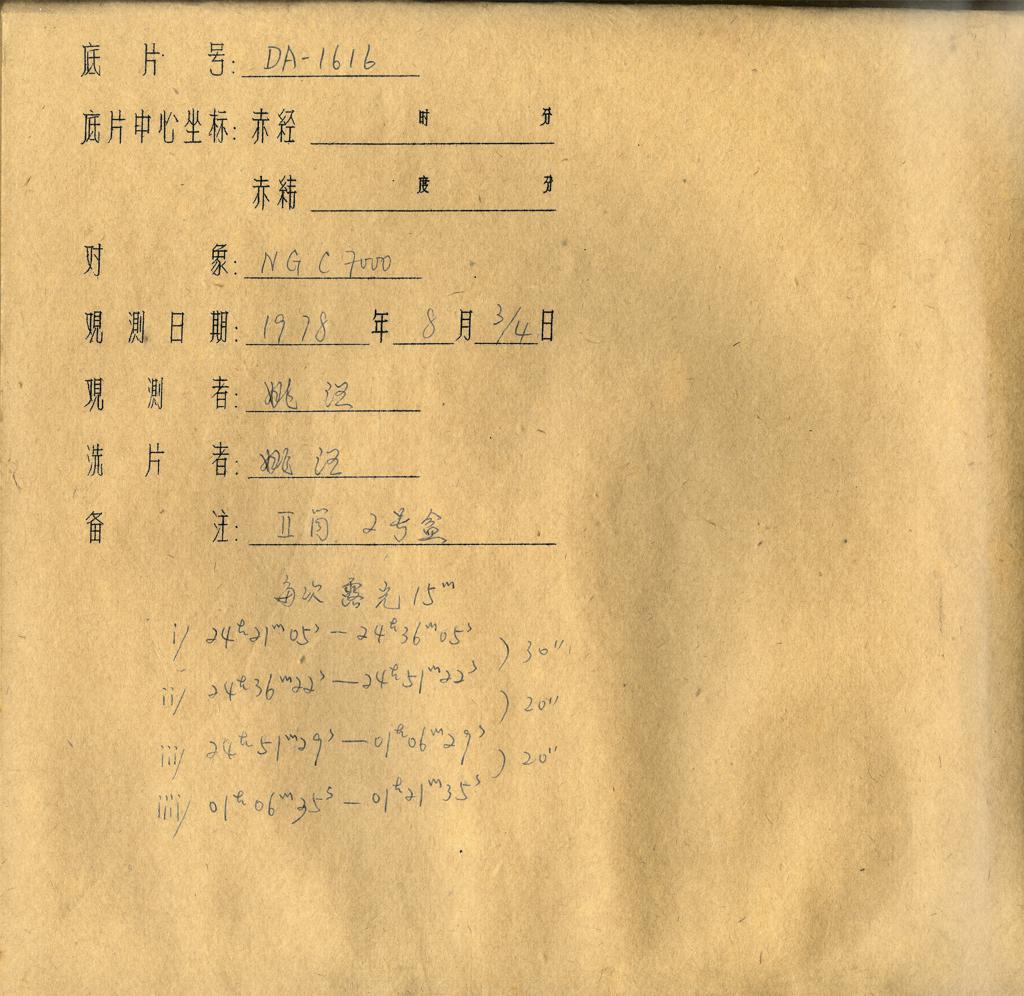 底片号: DA-1616
底片中心坐标: 赤经 时 分
赤纬 度 分
对象: NGC7000
观测日期: 1978年8月3/4日
观测者: 姚
洗片者: 姚
备注: II 筒 2号盒
每次露光15ᵐ
i/ 24ʰ21ᵐ05ˢ — 24ʰ36ᵐ05ˢ ) 30"
ii/ 24ʰ36ᵐ22ˢ — 24ʰ51ᵐ22ˢ ) 20"
iii/ 24ʰ51ᵐ29ˢ — 01ʰ06ᵐ29ˢ ) 20"
iiii/ 01ʰ06ᵐ35ˢ — 01ʰ21ᵐ35ˢ